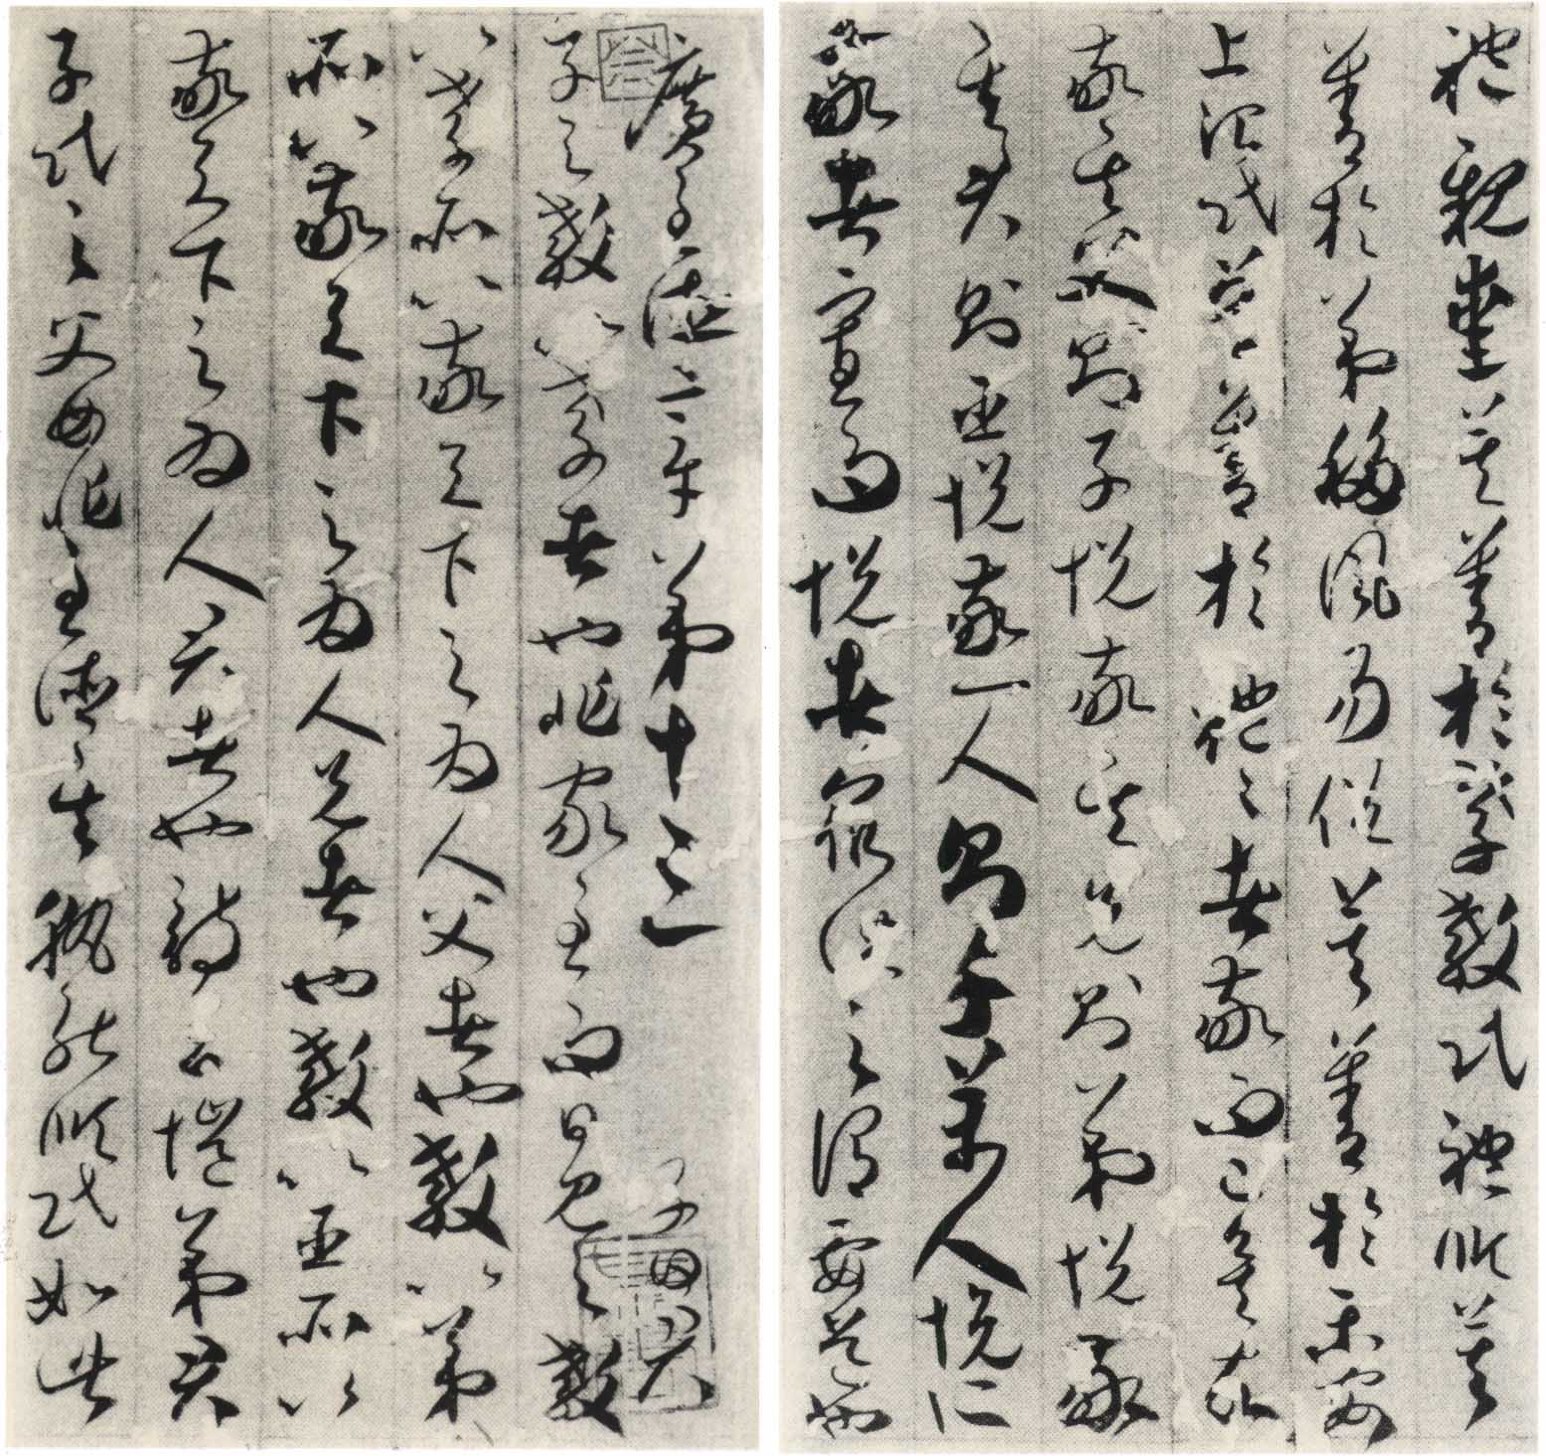 禮親愛莫善於孝教民禮順莫
善於弟移風易俗莫善於樂安
上治民莫善於禮禮者敬而已矣故
敬其父則子悅敬其兄則弟悅敬
其君則臣悅敬一人則千萬人悅所
敬者寡而悅者衆此之謂要道也
廣至德章第十三 子曰君
子之教以孝者也非家至而日見之教
以孝所以敬天下之為人父者也教以弟
所以敬天下之為人兄者也教以臣所以
敬天下之為人君者也詩云愷弟君
子民之父母非至德其孰能順民如此